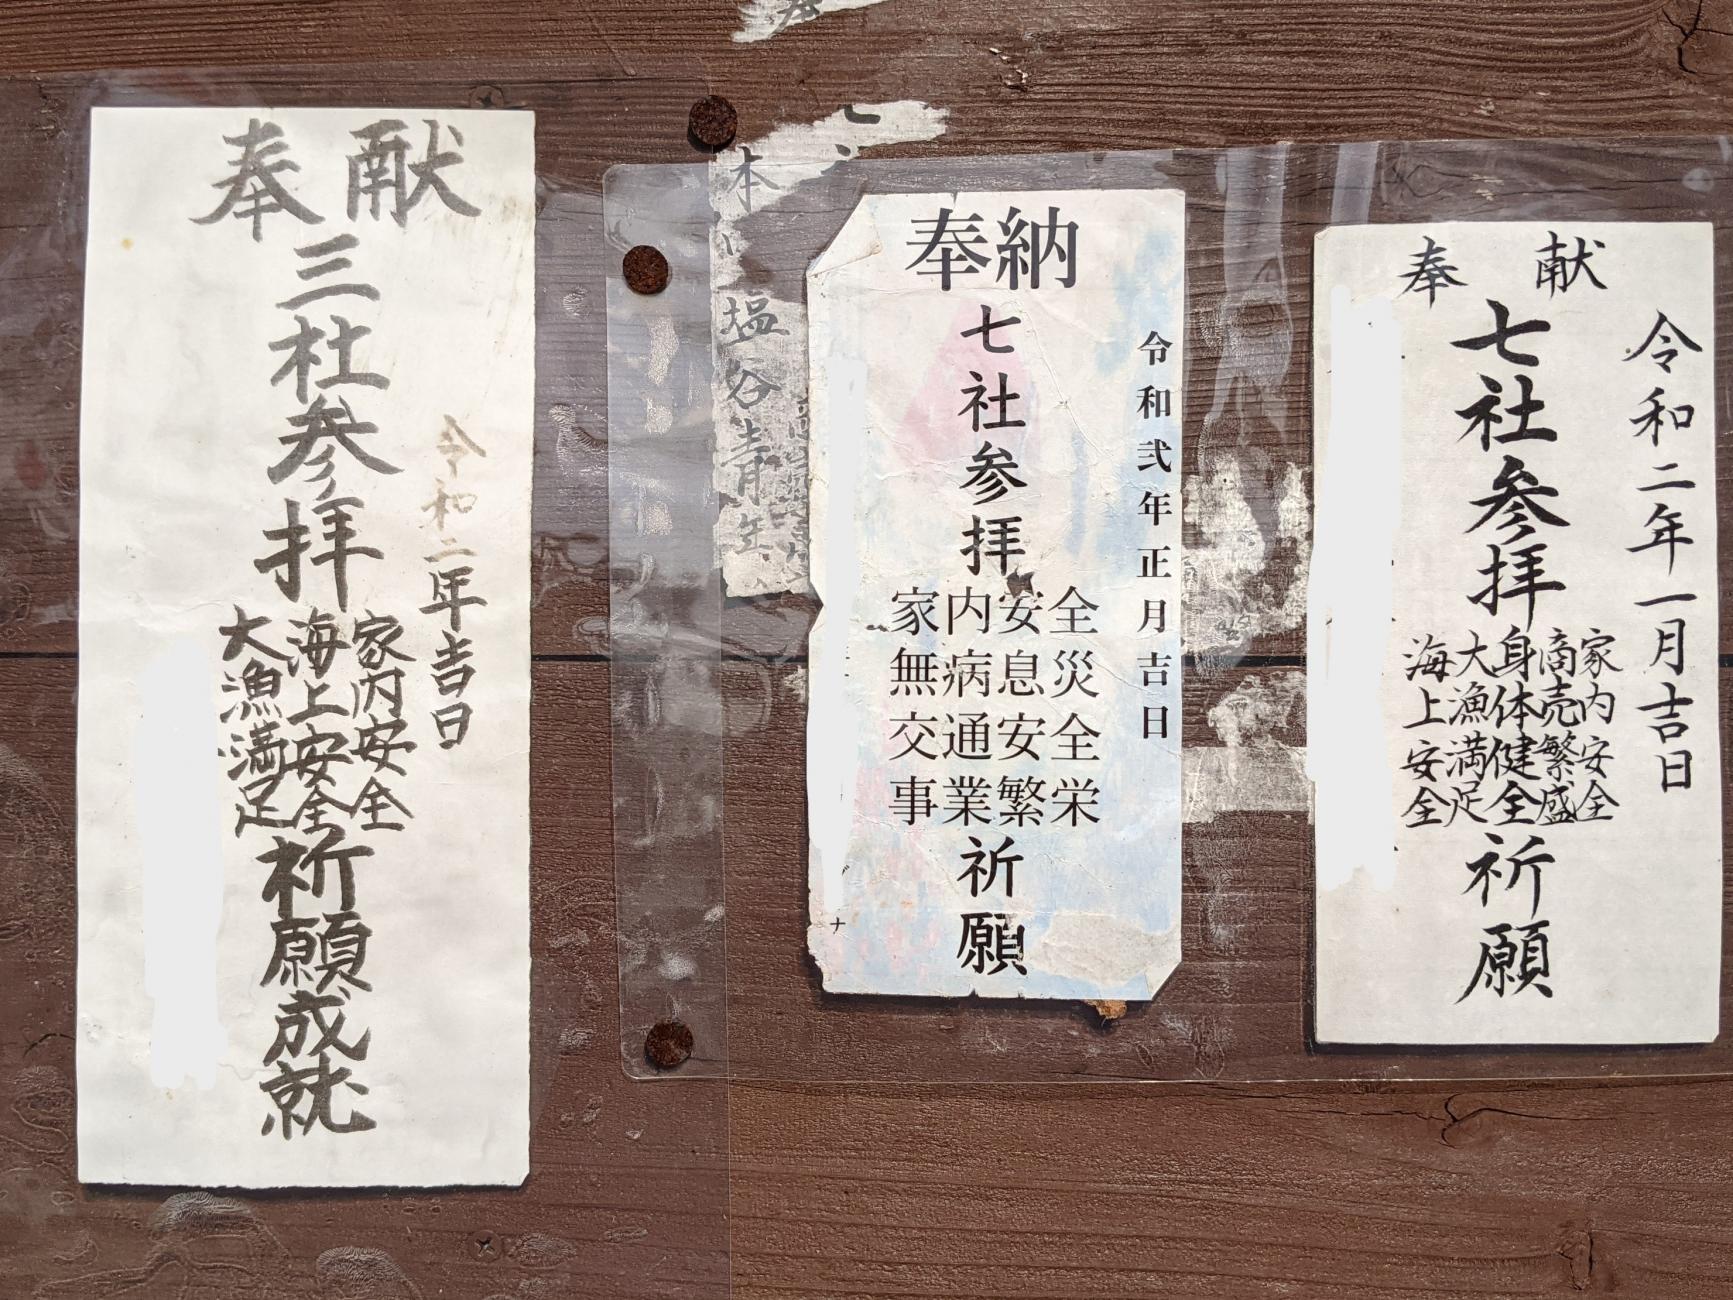 奉献
令和二年吉日
三社参拝
家内安全
海上安全
大漁満足
祈願成就
塩谷青年
奉納
令和弐年正月吉日
七社参拝
家内安全
無病息災
交通安全
事業繁栄
祈願
奉献
令和二年一月吉日
七社参拝
家内安全
商売繁盛
身体健全
大漁満足
海上安全
祈願